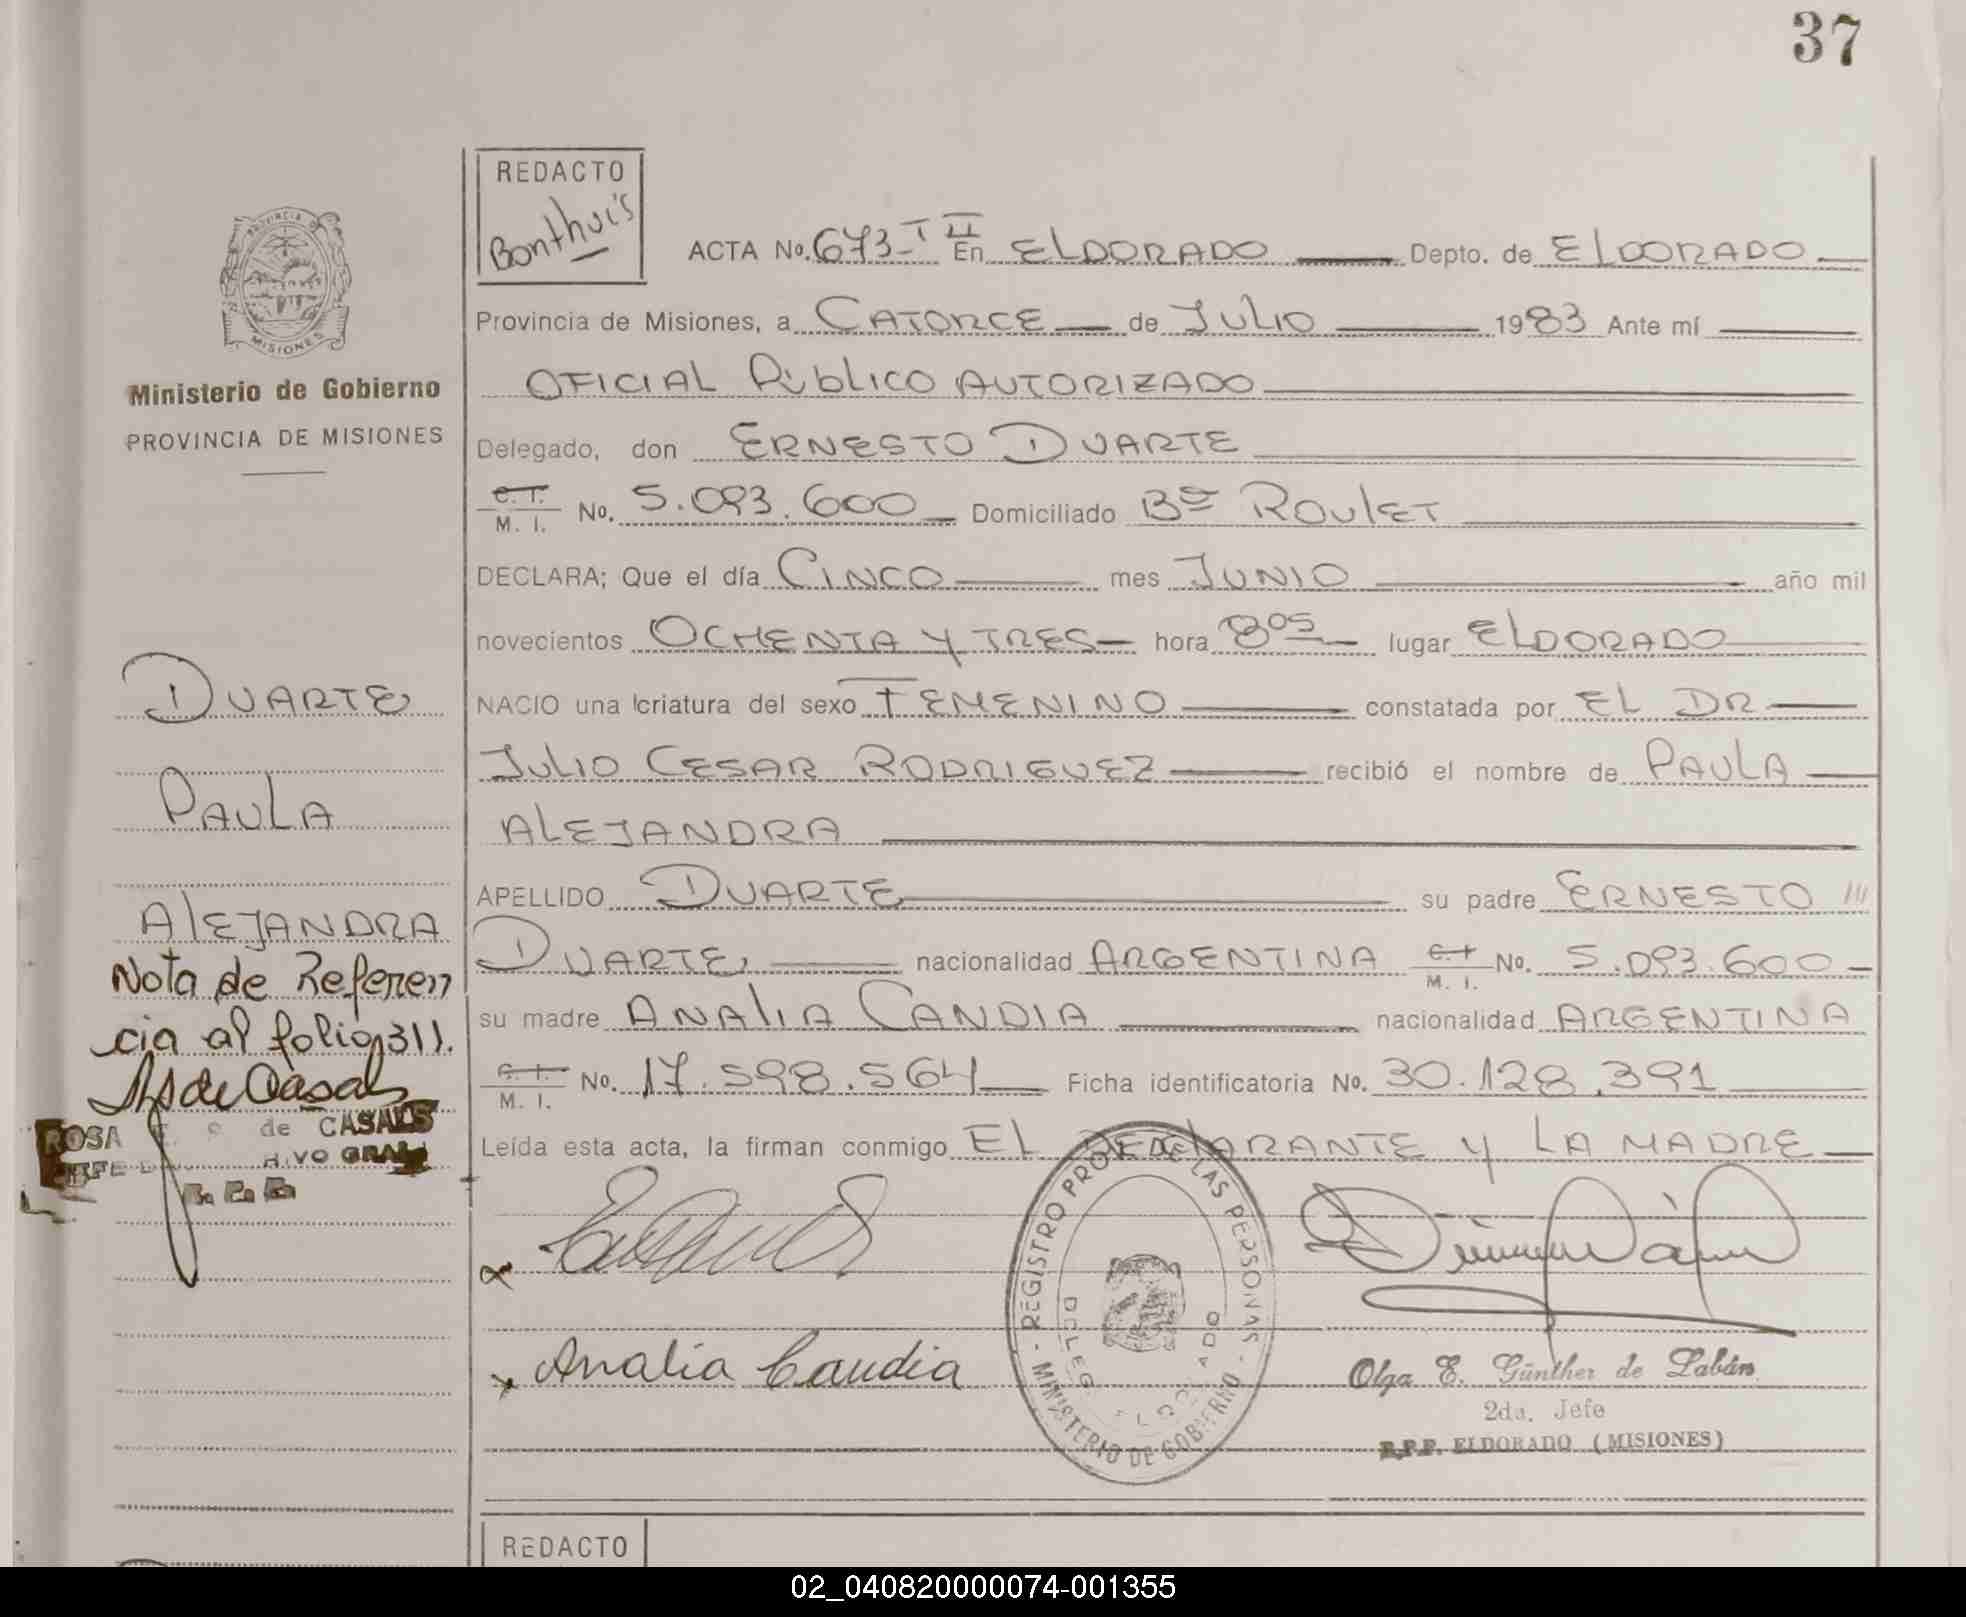 37
REDACTO
Bonthuis
ACTA No. 673-T II En ELDORADO Depto. de ELDORADO
Provincia de Misiones, a CATORCE de JULIO 1983 Ante mí
OFICIAL PÚBLICO AUTORIZADO
Delegado, don ERNESTO DUARTE
C.I. M. I. No. 5.093.600 Domiciliado Bº ROULET
DECLARA; Que el día CINCO mes JUNIO año mil
novecientos OCHENTA Y TRES hora 8 OS lugar ELDORADO
NACIO una criatura del sexo FEMENINO constatada por EL DR
JULIO CESAR RODRIGUEZ recibió el nombre de PAULA
ALEJANDRA
APELLIDO DUARTE su padre ERNESTO
DUARTE nacionalidad ARGENTINA C.I. M. I. No. 5.093.600
su madre ANALIA CANDIA nacionalidad ARGENTINA
C.I. M. I. No. 17.598.564 Ficha identificatoria No. 30.128.391
Leída esta acta, la firman conmigo EL DECLARANTE Y LA MADRE
Analia Candia
REGISTRO PROV. DE LAS PERSONAS
MINISTERIO DE GOBIERNO
Olga E. Günther de Labán
2da. Jefe
R.P.P. ELDORADO (MISIONES)
PROVINCIA DE
MISIONES
Ministerio de Gobierno
PROVINCIA DE MISIONES
DUARTE
PAULA
ALEJANDRA
Nota de Referen
cia al folio 311.
de Casals
ROSA de CASALS
REDACTO
02_040820000074-001355